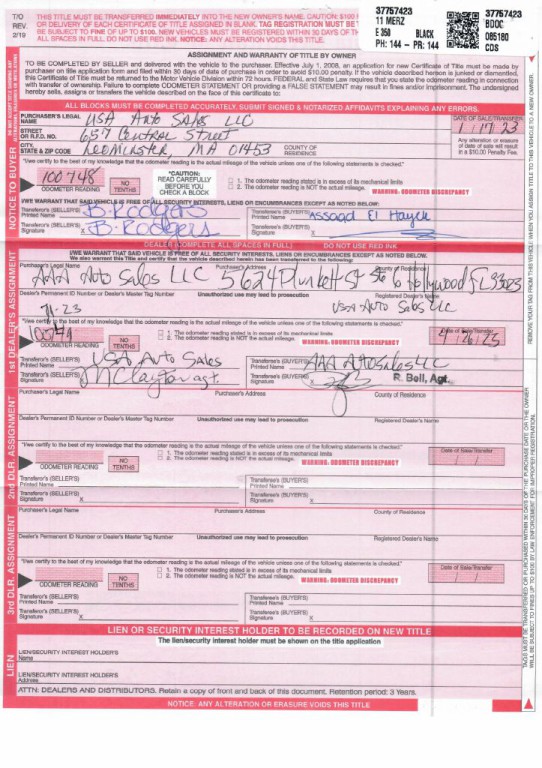 T/O
REV.
2/19
THIS TITLE MUST BE TRANSFERRED IMMEDIATELY INTO THE NEW OWNER'S NAME. CAUTION: $100
OR DELIVERY OF EACH CERTIFICATE OF TITLE ASSIGNED IN BLANK. TAG REGISTRATION MUST BE
BE SUBJECT TO FINE OF UP TO $100. NEW VEHICLES MUST BE REGISTERED WITHIN 30 DAYS OF
ALL SPACES IN FULL. DO NOT USE RED INK. NOTICE: ANY ALTERATION VOIDS THIS TITLE.
37757423
11 MERZ
E 350 BLACK
PH: 144 - PR: 144
37757423
BDOC
085180
CDS
ASSIGNMENT AND WARRANTY OF TITLE BY OWNER
TO BE COMPLETED BY SELLER and delivered with the vehicle to the purchaser. Effective July 1, 2008, an application for new Certificate of Title must be made by
purchaser on title application form and filed within 30 days of date of purchase in order to avoid $10.00 penalty. If the vehicle described hereon is junked or dismantled,
this Certificate of Title must be returned to the Motor Vehicle Division within 72 hours. FEDERAL and State Law requires that you state the odometer reading in connection
with transfer of ownership. Failure to complete ODOMETER STATEMENT OR providing a FALSE STATEMENT may result in fines and/or imprisonment. The undersigned
hereby sells, assigns or transfers the vehicle described on the face of this certificate to:
ALL BLOCKS MUST BE COMPLETED ACCURATELY, SUBMIT SIGNED & NOTARIZED AFFIDAVITS EXPLAINING ANY ERRORS.
NOTICE TO BUYER
PURCHASER'S LEGAL NAME USA Auto Sales LLC
DATE OF SALE/TRANSFER
STREET OR R.F.D. NO. 657 Central Street
CITY, STATE & ZIP CODE Leominster, MA 01453 COUNTY OF RESIDENCE
Any alteration or erasure of date of sale will result in a $10.00 Penalty Fee.
"I/we certify to the best of my knowledge that the odometer reading is the actual mileage of the vehicle unless one of the following statements is checked."
100748
ODOMETER READING NO TENTHS
"CAUTION: READ CAREFULLY BEFORE YOU CHECK A BLOCK
1. The odometer reading stated is in excess of its mechanical limits
2. The odometer reading is NOT the actual mileage. WARNING: ODOMETER DISCREPANCY
I/WE WARRANT THAT SAID VEHICLE IS FREE OF ALL SECURITY INTERESTS, LIENS OR ENCUMBRANCES EXCEPT AS NOTED BELOW:
Transferor's (SELLER'S) Printed Name B. Rodgers
Transferee's (BUYER'S) Printed Name Assaad El Hayek
Transferor's (SELLER'S) Signature X B. Rodgers
Transferee's (BUYER'S) Signature X
1st DEALER'S ASSIGNMENT
DEALER (COMPLETE ALL SPACES IN FULL) DO NOT USE RED INK
I/WE WARRANT THAT SAID VEHICLE IS FREE OF ALL SECURITY INTERESTS, LIENS OR ENCUMBRANCES EXCEPT AS NOTED BELOW.
We also warrant this Title and certify that the vehicle described herein has been transferred to the following:
Purchaser's Legal Name County of Residence
AAA Auto Sales LLC 5624 Plunkett St Ste 6 Hollywood FL 33023
Dealer's Permanent ID Number or Dealer's Master Tag Number Unauthorized use may lead to prosecution Registered Dealer's Name
USA Auto Sales LLC
"I/we certify to the best of my knowledge that the odometer reading is the actual mileage of the vehicle unless one of the following statements is checked."
ODOMETER READING NO TENTHS
1. The odometer reading stated is in excess of its mechanical limits
2. The odometer reading is NOT the actual mileage. WARNING: ODOMETER DISCREPANCY
Date of Sale/Transfer
Transferor's (SELLER'S) Printed Name USA Auto Sales
Transferee's (BUYER'S) Printed Name AAA Auto Sales LLC
Transferor's (SELLER'S) Signature
Transferee's (BUYER'S) Signature R. Bell, Agt.
2nd DLR. ASSIGNMENT
Purchaser's Legal Name Purchaser's Address County of Residence
Dealer's Permanent ID Number or Dealer's Master Tag Number Unauthorized use may lead to prosecution Registered Dealer's Name
"I/we certify to the best of my knowledge that the odometer reading is the actual mileage of the vehicle unless one of the following statements is checked."
ODOMETER READING NO TENTHS
1. The odometer reading stated is in excess of its mechanical limits
2. The odometer reading is NOT the actual mileage. WARNING: ODOMETER DISCREPANCY
Date of Sale/Transfer
/ /
Transferor's (SELLER'S) Printed Name
Transferee's (BUYER'S) Printed Name
Transferor's (SELLER'S) Signature X
Transferee's (BUYER'S) Signature X
3rd DLR. ASSIGNMENT
Purchaser's Legal Name Purchaser's Address County of Residence
Dealer's Permanent ID Number or Dealer's Master Tag Number Unauthorized use may lead to prosecution Registered Dealer's Name
"I/we certify to the best of my knowledge that the odometer reading is the actual mileage of the vehicle unless one of the following statements is checked."
ODOMETER READING NO TENTHS
1. The odometer reading stated is in excess of its mechanical limits
2. The odometer reading is NOT the actual mileage. WARNING: ODOMETER DISCREPANCY
Date of Sale/Transfer
/ /
Transferor's (SELLER'S) Printed Name
Transferee's (BUYER'S) Printed Name
Transferor's (SELLER'S) Signature X
Transferee's (BUYER'S) Signature X
LIEN
LIEN OR SECURITY INTEREST HOLDER TO BE RECORDED ON NEW TITLE
The lien/security interest holder must be shown on the title application
LIEN/SECURITY INTEREST HOLDER'S
Name
LIEN/SECURITY INTEREST HOLDER'S
Address
ATTN: DEALERS AND DISTRIBUTORS. Retain a copy of front and back of this document. Retention period: 3 Years.
NOTICE: ANY ALTERATION OR ERASURE VOIDS THIS TITLE
REMOVE YOUR TAG FROM THIS VEHICLE WHEN YOU ASSIGN TITLE TO THIS VEHICLE TO A NEW OWNER.